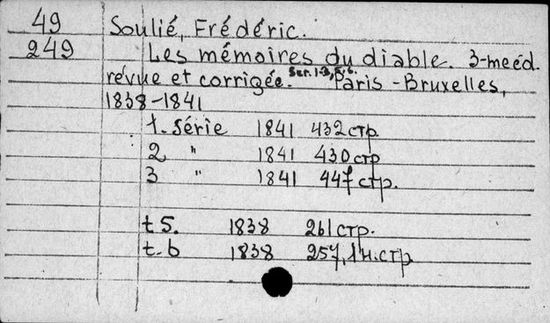 49 Soulié, Frédéric.
249 Les mémoires du diable. 3-meéd.
revue et corrigée. Ser. 1-3, 5-6. Paris-Bruxelles,
1838-1841
1. Série 1841 432 стр
2 " 1841 430 стр
3 " 1841 447 стр.
t 5. 1838 261 стр.
t. 6 1838 257, 1 н. стр